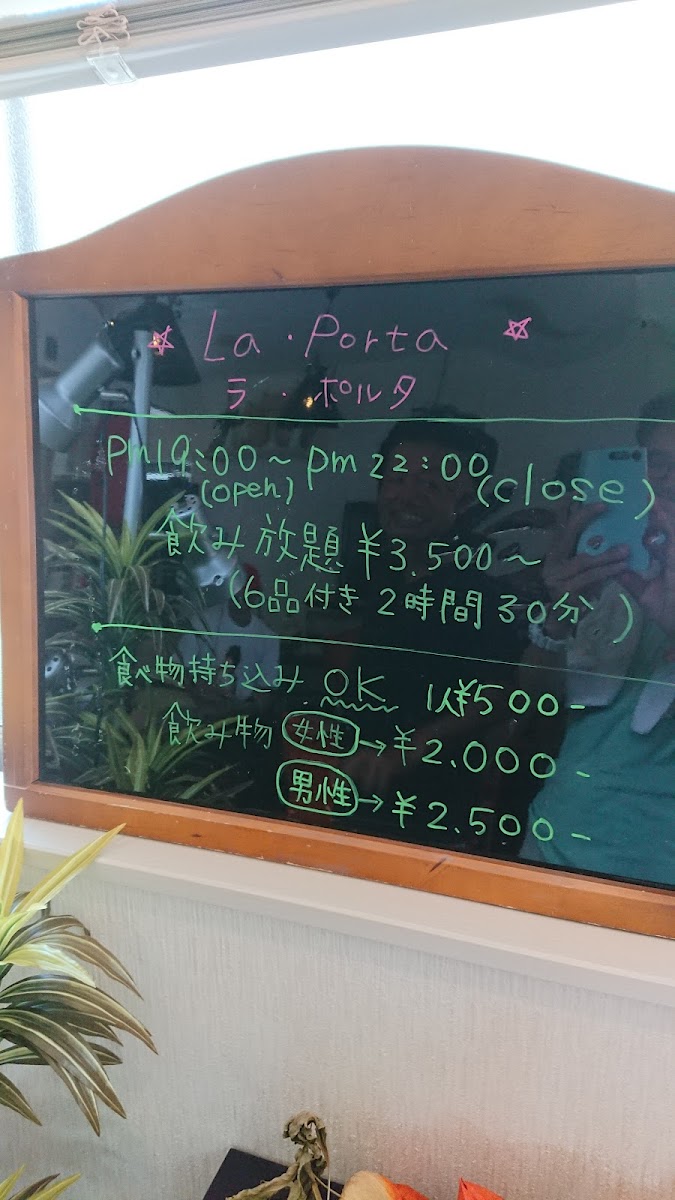 ☆ La・Porta ☆
ラ・ポルタ
pm19:00～pm22:00(close)
(open)
飲み放題¥3.500～
(6品付き2時間30分)
食べ物持ち込みOK 1人¥500-
飲み物 女性→¥2.000-
男性→¥2.500-